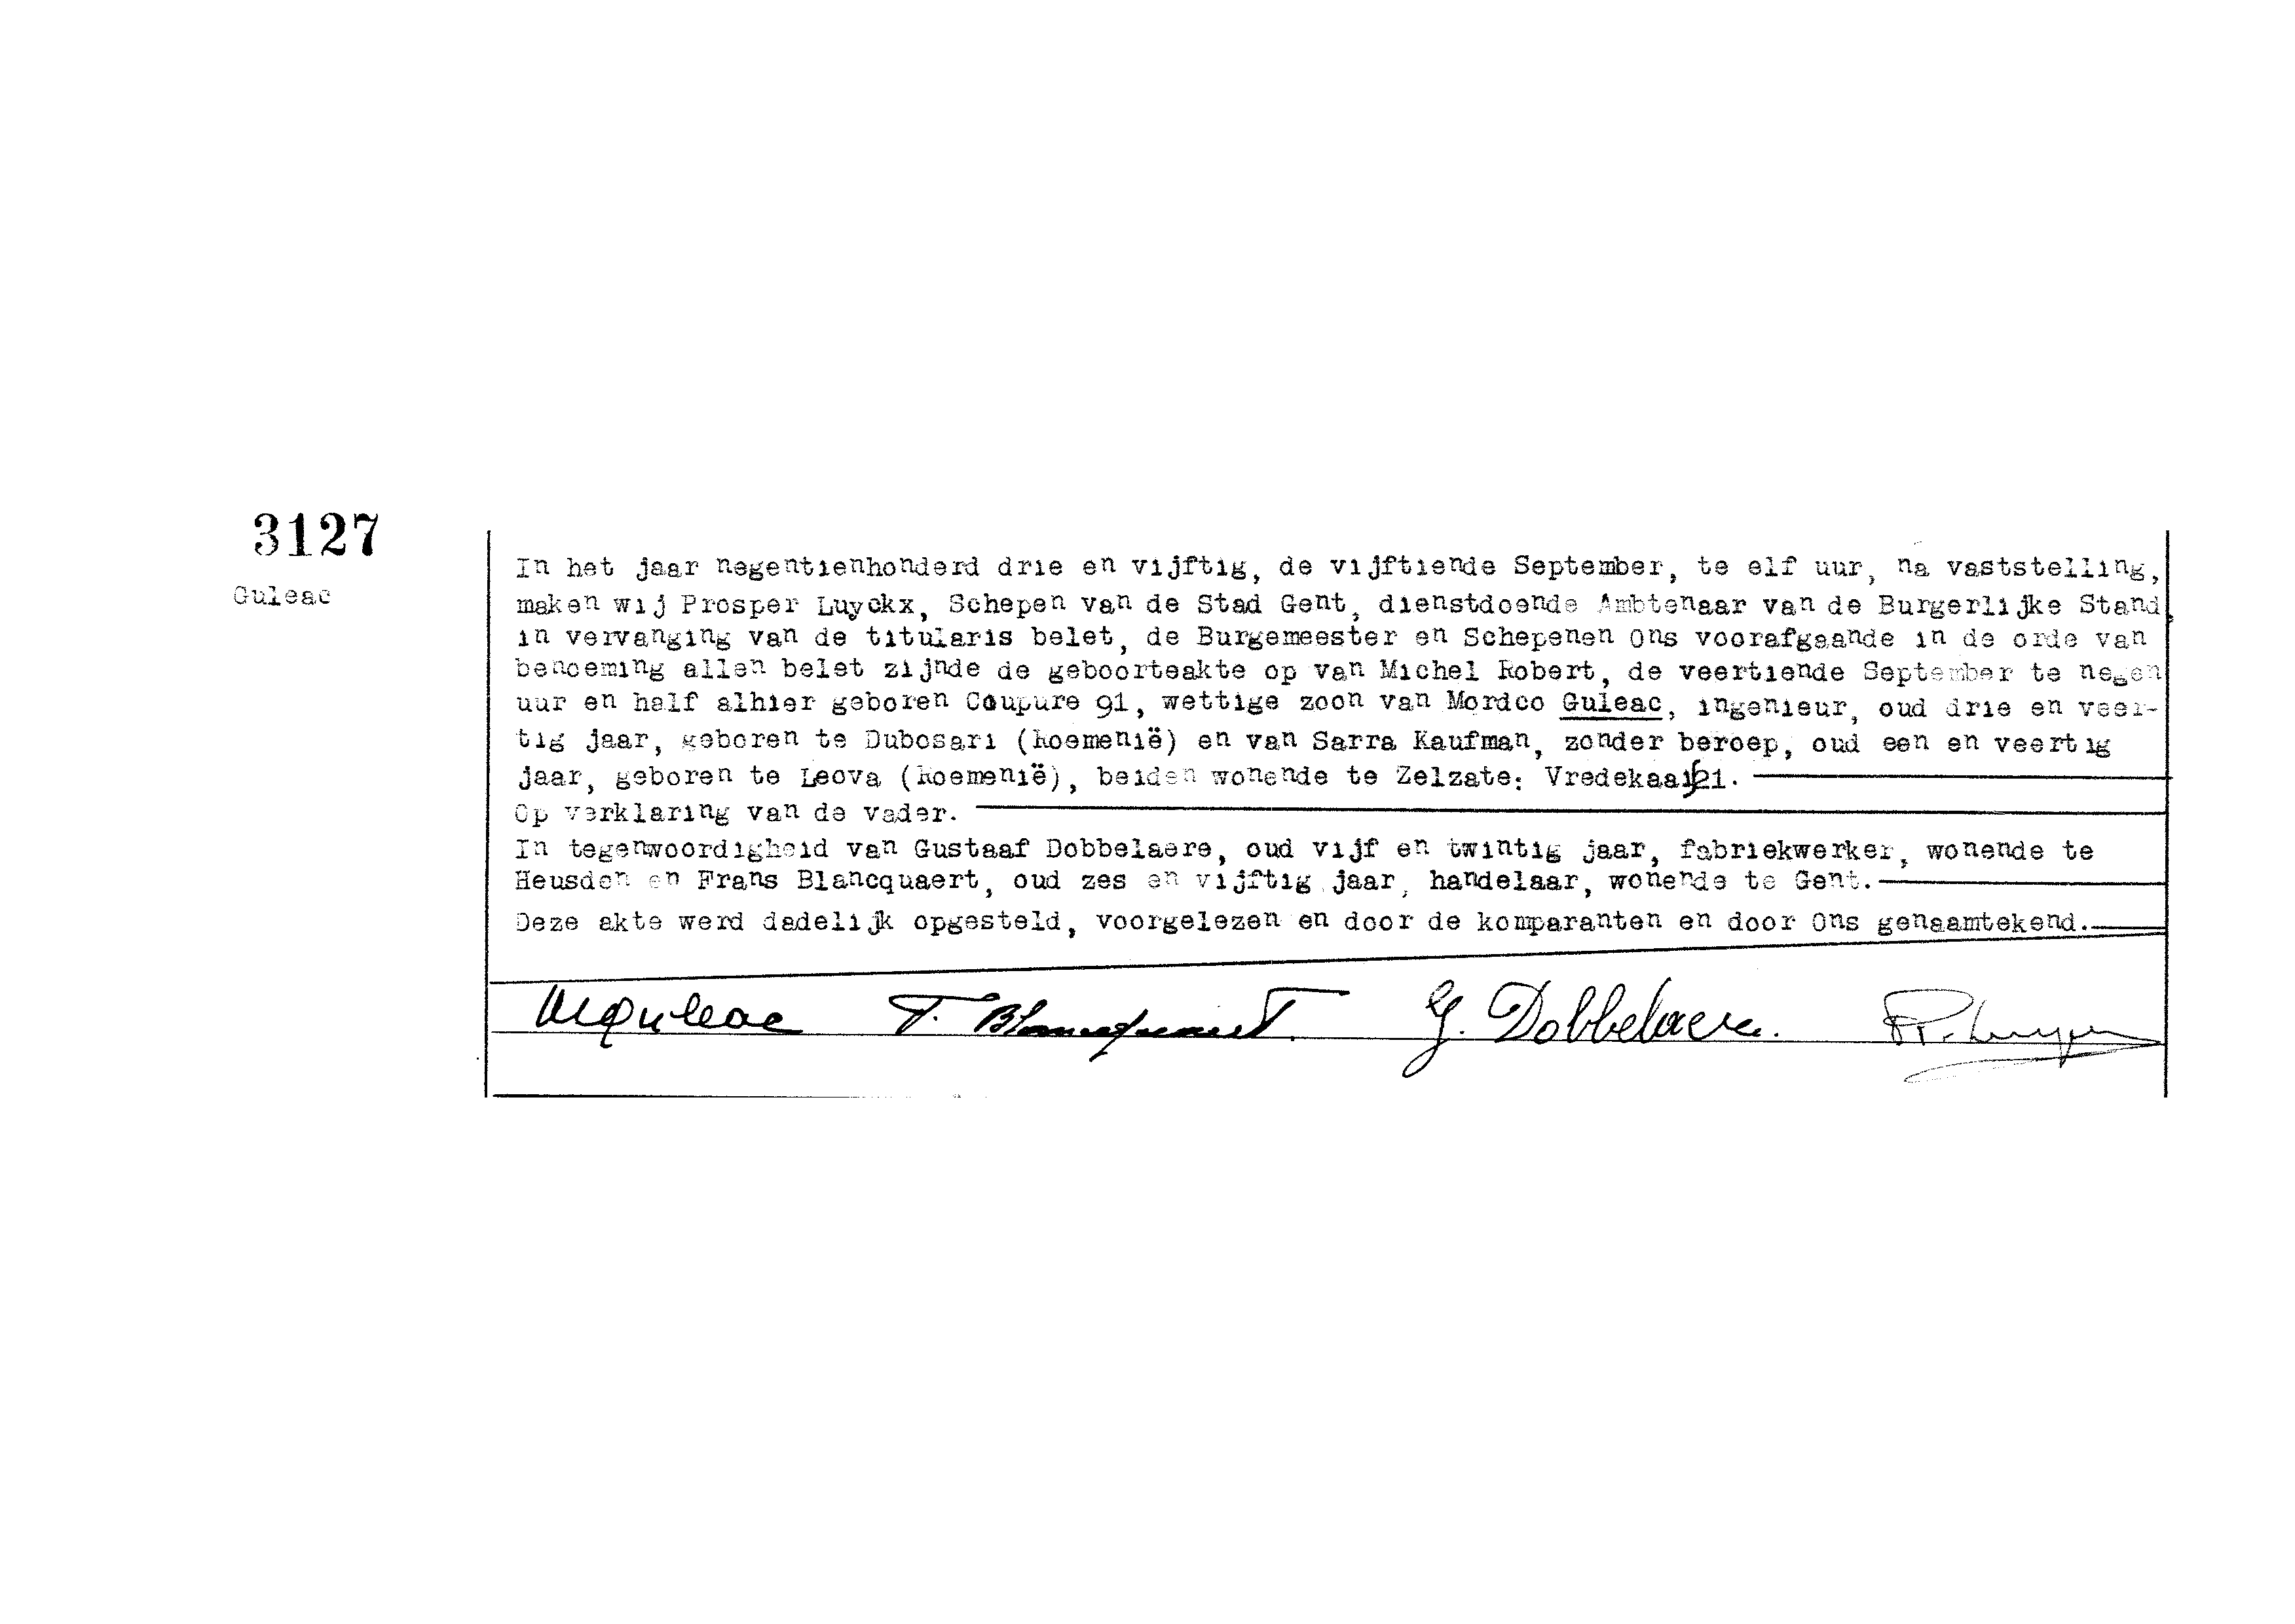 3127
Guleac
In het jaar negentienhonderd drie en vijftig, de vijftiende September, te elf uur, na vaststelling,
maken wij Prosper Luyckx, Schepen van de Stad Gent, dienstdoende Ambtenaar van de Burgerlijke Stand,
in vervanging van de titularis belet, de Burgemeester en Schepenen Ons voorafgaande in de orde van
benoeming allen belet zijnde de geboorteakte op van Michel Robert, de veertiende September te negen
uur en half alhier geboren Coupure 91, wettige zoon van Mordco Guleac, ingenieur, oud drie en veer-
tig jaar, geboren te Dubosari (Roemenië) en van Sarra Kaufman, zonder beroep, oud een en veertig
jaar, geboren te Leova (Roemenië), beiden wonende te Zelzate: Vredekaai 21.
Op verklaring van de vader.
In tegenwoordigheid van Gustaaf Dobbelaere, oud vijf en twintig jaar, fabriekwerker, wonende te
Heusden en Frans Blancquaert, oud zes en vijftig jaar, handelaar, wonende te Gent.
Deze akte werd dadelijk opgesteld, voorgelezen en door de komparanten en door Ons genaamtekend.
MGuleac F. Blancquaert. G. Dobbelaere.